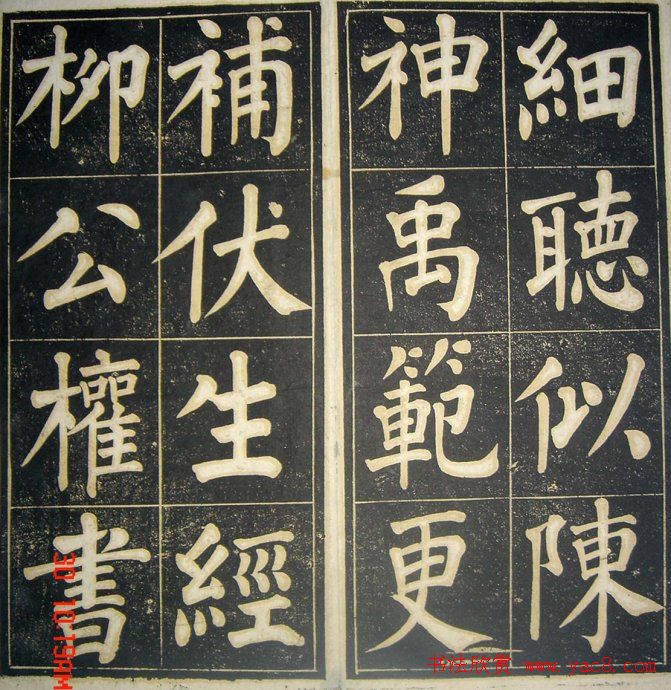 細聽似陳
神禹範更
補伏生經
柳公權書
书法欣赏 www.yac8.com
30 10:19AM